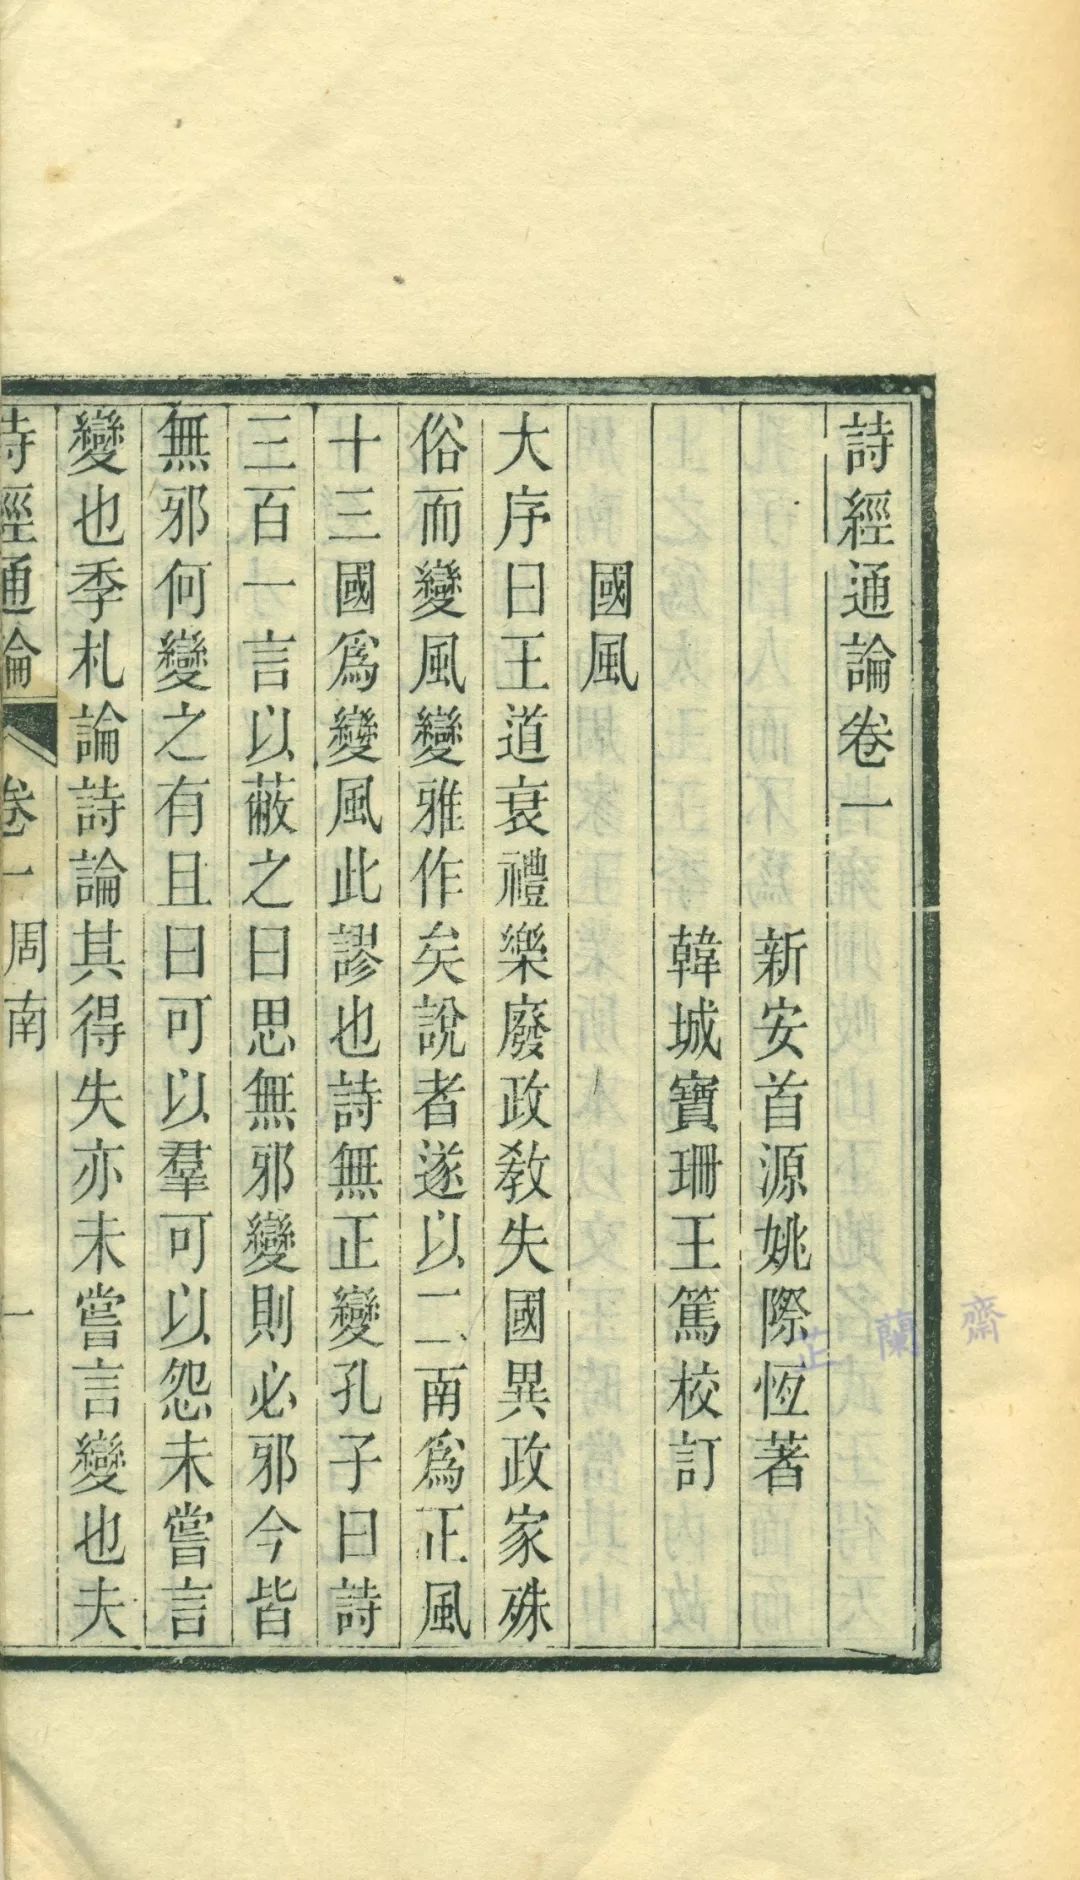 詩經通論卷一
新安首源姚際恆著
韓城寶珊王篤校訂
國風
大序曰王道衰禮樂廢政教失國異政家殊
俗而變風變雅作矣說者遂以二南為正風
十三國為變風此謬也詩無正變孔子曰詩
三百一言以蔽之曰思無邪變則必邪今皆
無邪何變之有且曰可以羣可以怨未嘗言
變也季札論詩論其得失亦未嘗言變也夫
詩經通論 卷一 周南 一
芷蘭齋